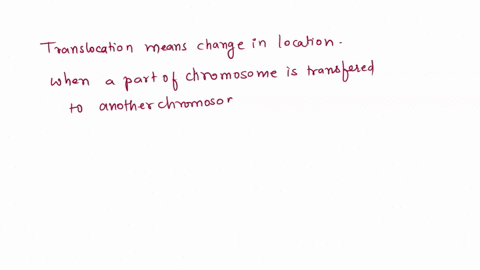 Translocation means change in location.
when a part of chromosome is transfered
to another chromosor